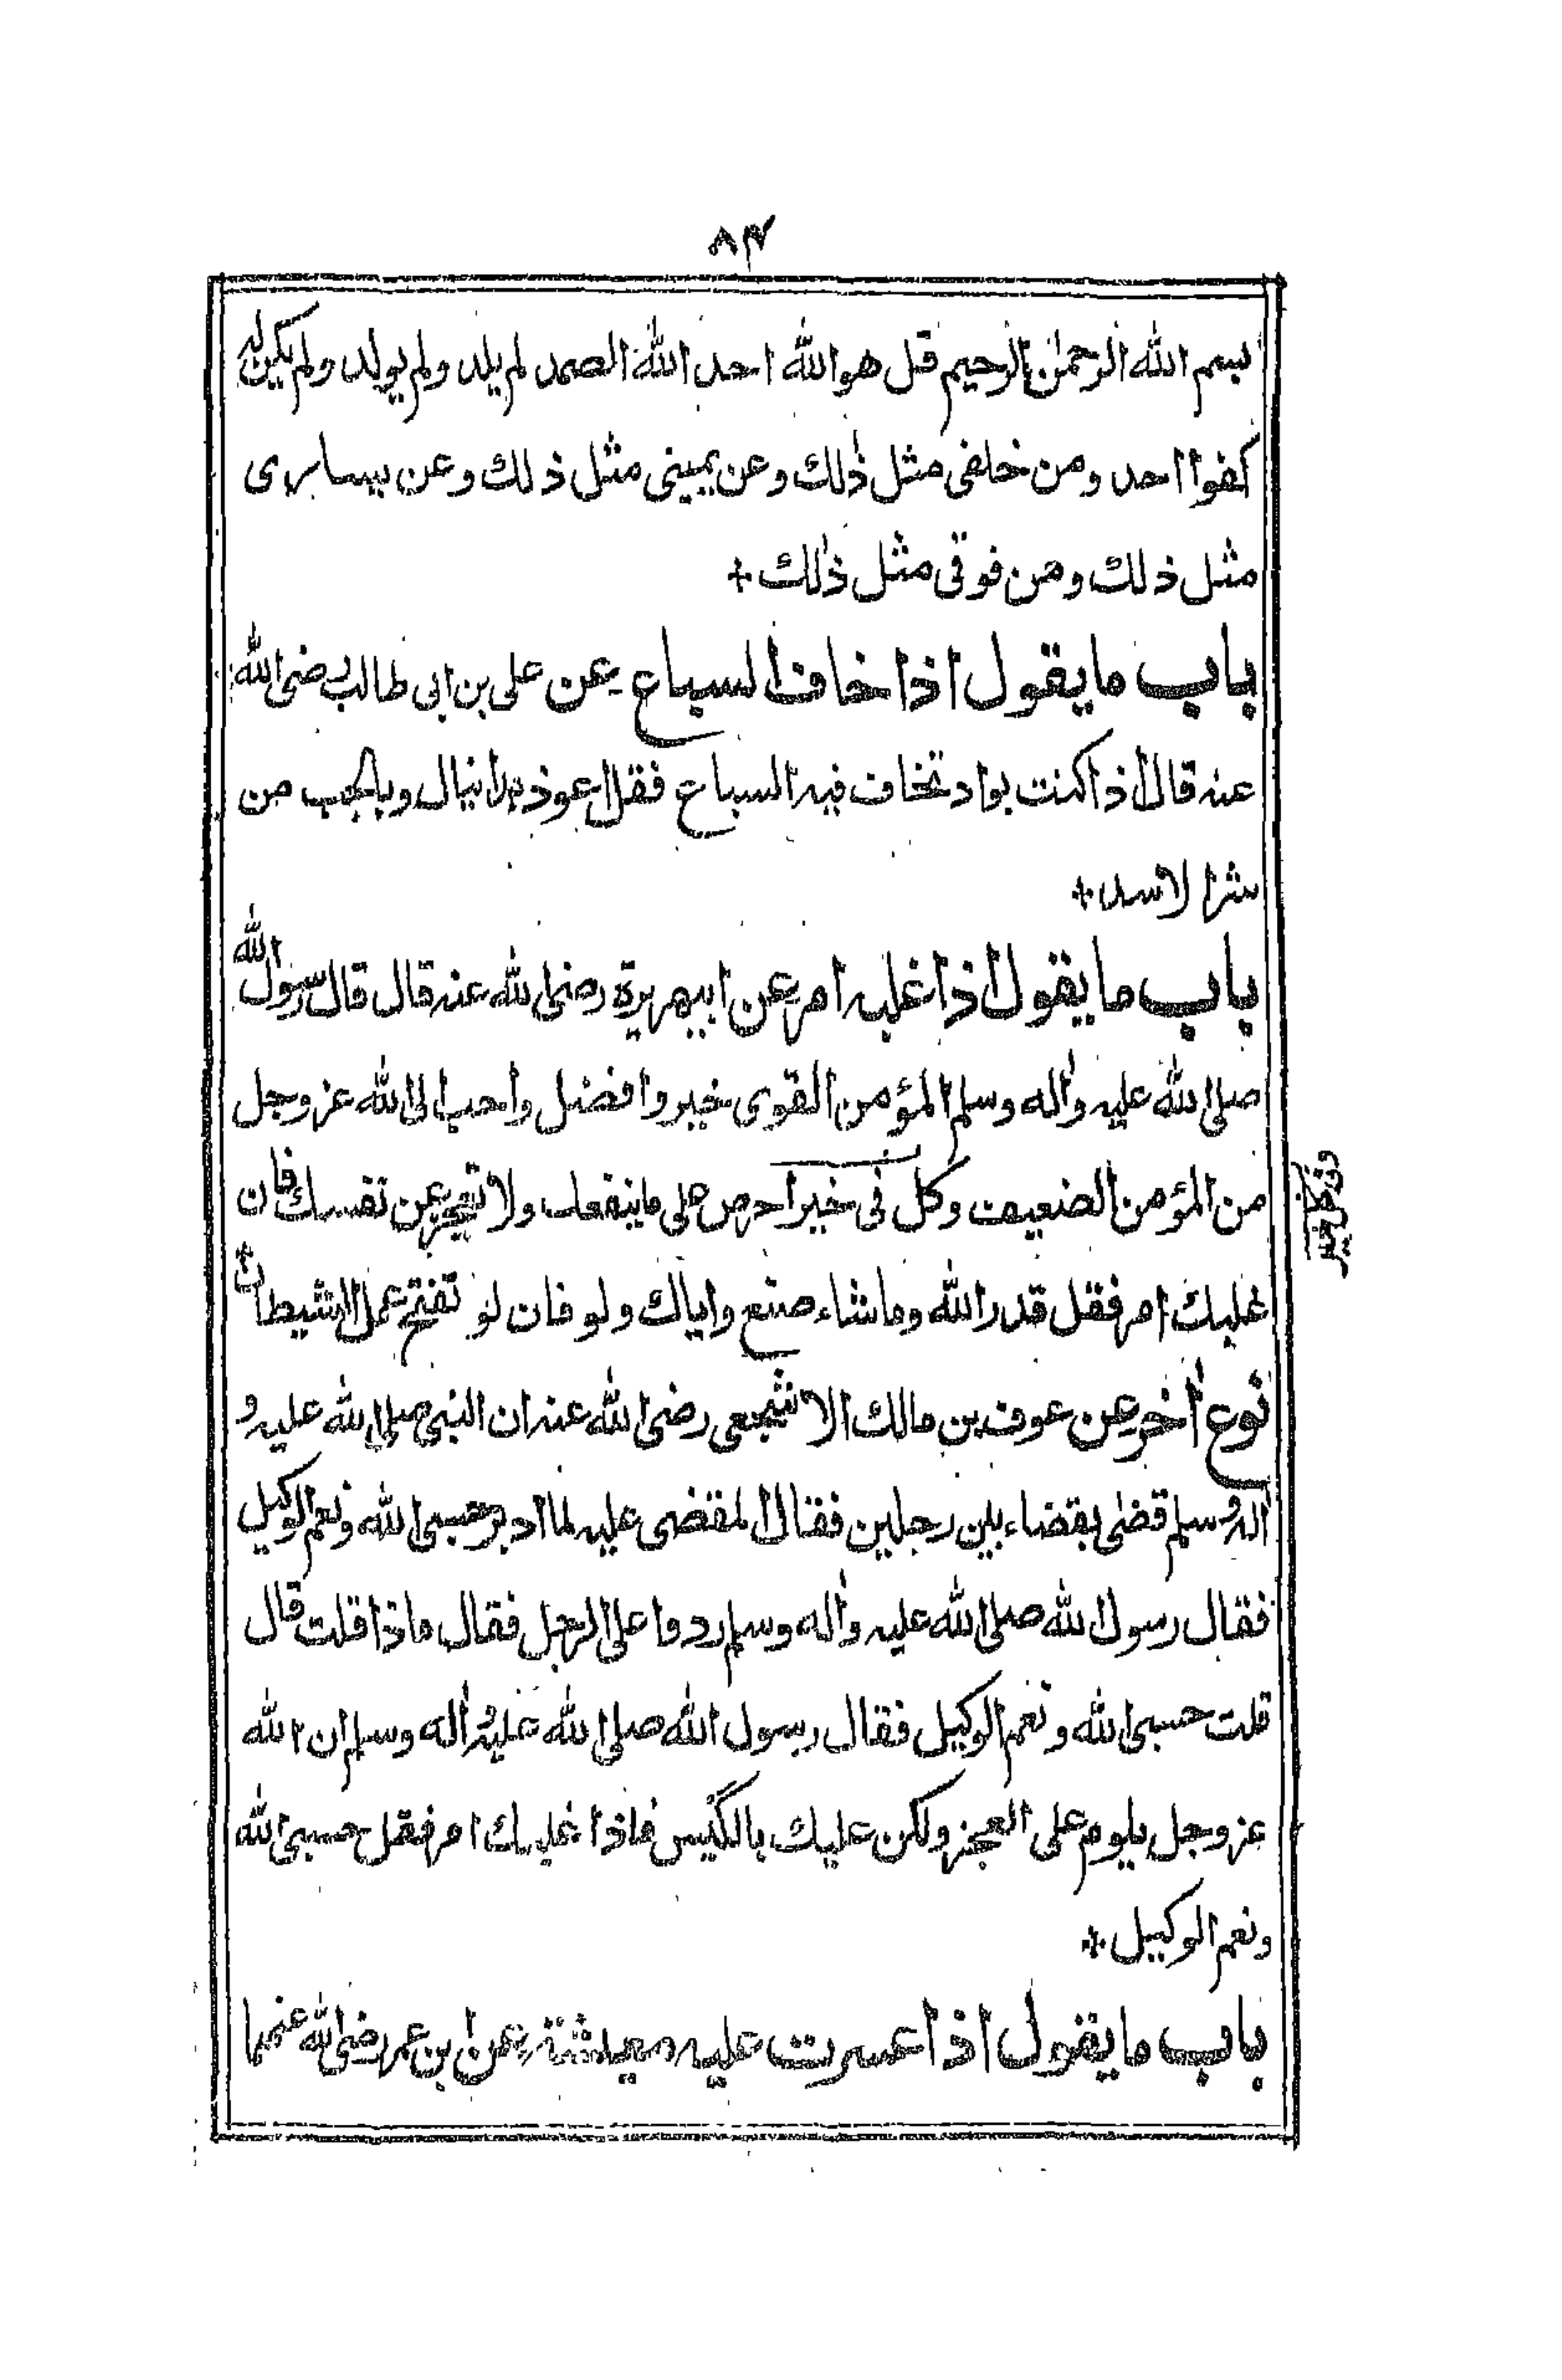 ۸۴
بسم الله الرحمٰن الرحیم قل هو الله احد الله الصمد لم یلد ولم یولد ولم یکن له
کفوا احد ومن خلفی مثل ذٰلك وعن یمینی مثل ذلك وعن یساری
مثل ذلك ومن فوقی مثل ذٰلك +
باب ما یقول اذا خاف السباع عن علی بن ابی طالب رضی الله
عنه قال اذا کنت بواد تخاف فیه السباع فقل اعوذ بدانیال وبالجب من
شر الاسد +
باب ما یقول اذا غلبه امر عن ابیهریرة رضی الله عنه قال قال رسول الله
صلی الله علیه واٰله وسلم المؤمن القوی خیر وافضل واحب الی الله عز وجل
من المؤمن الضعیف وکل فی خیر احرص علی ما ینفعك ولا تعجز عن نفسك فان
غلبك امر فقل قدر الله وما شاء صنع وایاك ولو فان لو تفتح عمل الشیطان +
نوع اٰخر عن عوف بن مالك الاشجعی رضی الله عنه ان النبی صلی الله علیه و
اٰله وسلم قضٰی بقضاء بین رجلین فقال المقضی علیه لما ادبر حسبی الله ونعم الوکیل
فقال رسول الله صلی الله علیه واٰله وسلم ردوا علی الرجل فقال ما ذا قلت قال
قلت حسبی الله ونعم الوکیل فقال رسول الله صلی الله علیه واٰله وسلم ان الله
عز وجل یلوم علی العجز ولکن علیك بالکیس فاذا غلبك امر فقل حسبی الله
ونعم الوکیل +
باب ما یقول اذا عسرت علیه معیشته عن ابن عمر رضی الله عنهما